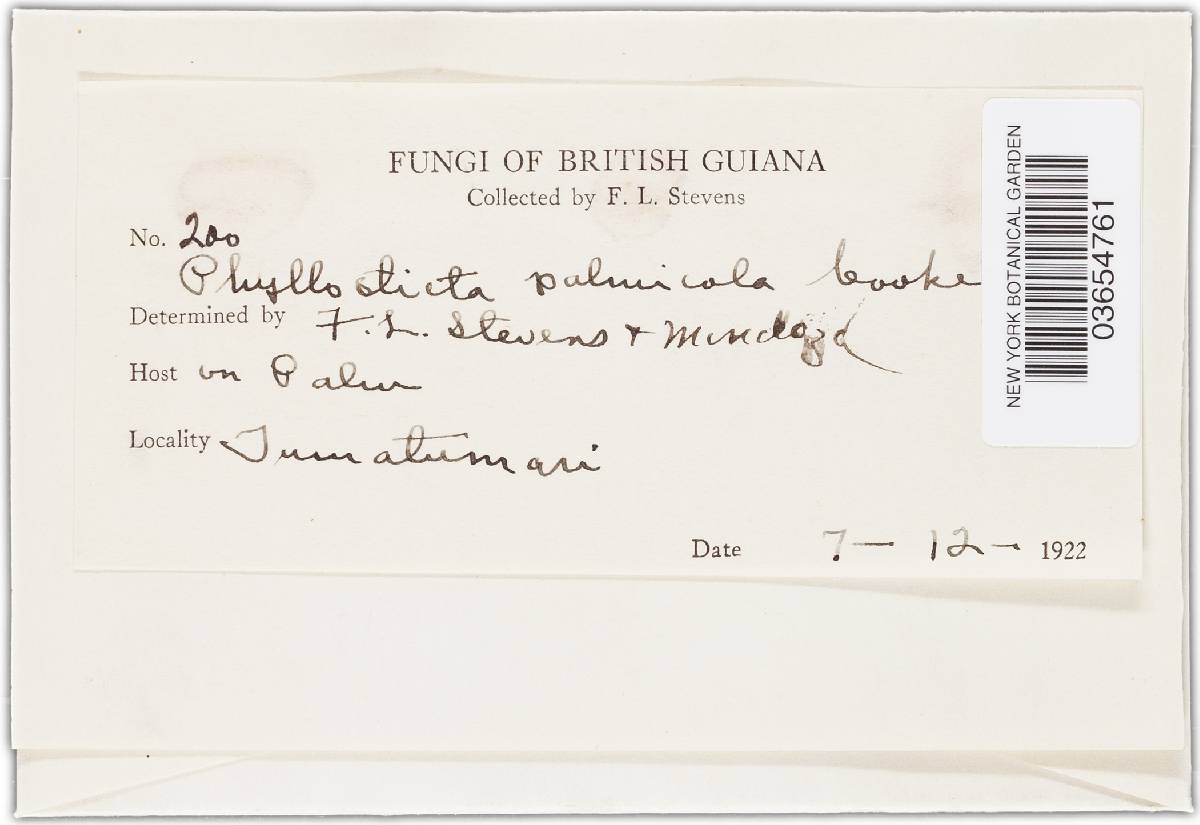 FUNGI OF BRITISH GUIANA
Collected by F. L. Stevens
No. 200
Phyllosticta palmicola Cooke
Determined by F. L. Stevens + Mendoza
Host on Palm
Locality Tumatumari
Date 7 - 12 - 1922
NEW YORK BOTANICAL GARDEN
03654761